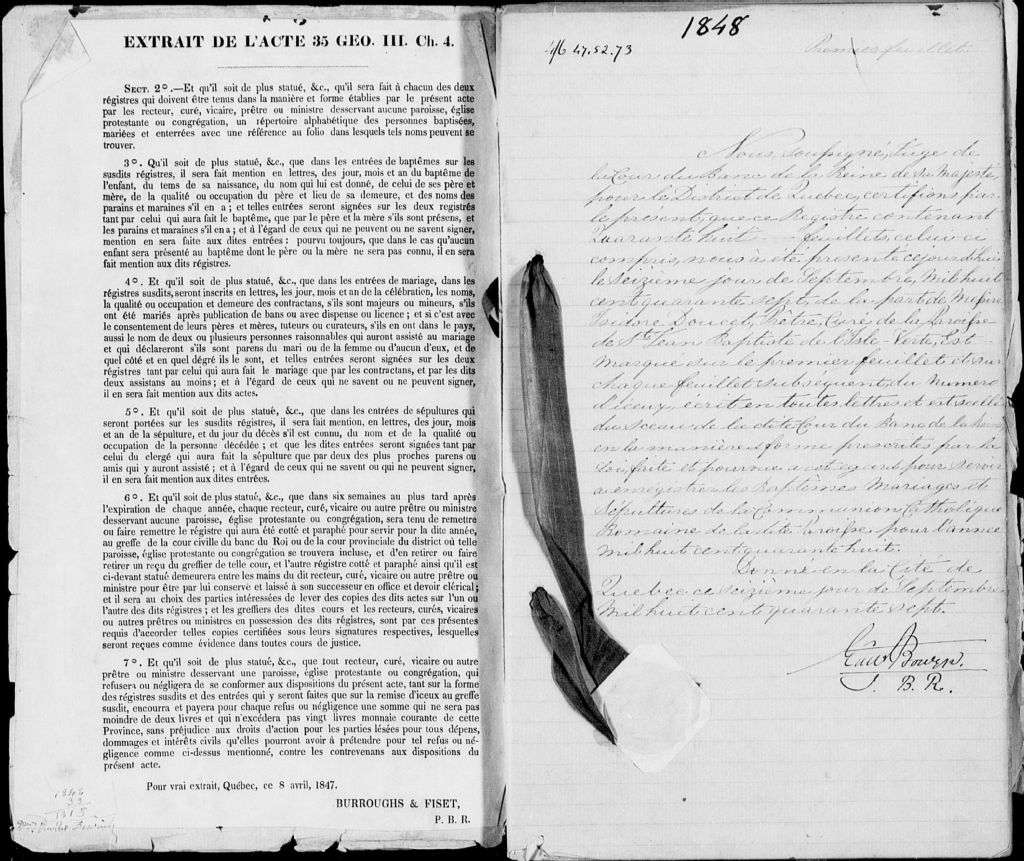 EXTRAIT DE L'ACTE 35 GEO. III. Ch. 4.
SECT. 2°.—Et qu'il soit de plus statué, &c., qu'il sera fait à chacun des deux
régistres qui doivent être tenus dans la manière et forme établies par le présent acte
par les recteur, curé, vicaire, prêtre ou ministre desservant aucune paroisse, église
protestante ou congrégation, un répertoire alphabétique des personnes baptisées,
mariées et enterrées avec une référence au folio dans lesquels tels noms peuvent se
trouver.
3°. Qu'il soit de plus statué, &c., que dans les entrées de baptêmes sur les
susdits régistres, il sera fait mention en lettres, des jour, mois et an du baptême de
l'enfant, du tems de sa naissance, du nom qui lui est donné, de celui de ses père et
mère, de la qualité ou occupation du père et lieu de sa demeure, et des noms des
parains et maraines s'il en a ; et telles entrées seront signées sur les deux registrés
tant par celui qui aura fait le baptême, que par le père et la mère s'ils sont présens, et
les parains et maraines s'il en a ; et à l'égard de ceux qui ne peuvent ou ne savent signer,
mention en sera faite aux dites entrées : pourvu toujours, que dans le cas qu'aucun
enfant sera présenté au baptême dont le père ou la mère ne sera pas connu, il en sera
fait mention aux dits régistres.
4°. Et qu'il soit de plus statué, &c., que dans les entrées de mariage, dans les
régistres susdits, seront inscrits en lettres, les jour, mois et an de la célébration, les noms,
la qualité ou occupation et demeure des contractans, s'ils sont majeurs ou mineurs, s'ils
ont été mariés après publication de bans ou avec dispense ou licence ; et si c'est avec
le consentement de leurs pères et mères, tuteurs ou curateurs, s'ils en ont dans le pays,
aussi le nom de deux ou plusieurs personnes raisonnables qui auront assisté au mariage
et qui déclareront s'ils sont parens du mari ou de la femme ou d'aucun d'eux, et de
quel côté et en quel dégré ils le sont, et telles entrées seront signées sur les deux
régistres tant par celui qui aura fait le mariage que par les contractans, et par les dits
deux assistans au moins ; et à l'égard de ceux qui ne savent ou ne peuvent signer,
il en sera fait mention aux dits actes.
5°. Et qu'il soit de plus statué, &c., que dans les entrées de sépultures qui
seront portées sur les susdits régistres, il sera fait mention, en lettres, des jour, mois
et an de la sépulture, et du jour du décès s'il est connu, du nom et de la qualité ou
occupation de la personne décédée ; et que les dites entrées seront signées tant par
celui du clergé qui aura fait la sépulture que par deux des plus proches parens ou
amis qui y auront assisté ; et à l'égard de ceux qui ne savent ou qui ne peuvent signer,
il en sera fait mention aux dites entrées.
6°. Et qu'il soit de plus statué, &c., que dans six semaines au plus tard après
l'expiration de chaque année, chaque recteur, curé, vicaire ou autre prêtre ou ministre
desservant aucune paroisse, église protestante ou congrégation, sera tenu de remettre
ou faire remettre le régistre qui aura été cotté et paraphé pour servir pour la dite année,
au greffe de la cour civile du banc du Roi ou de la cour provinciale du district où telle
paroisse, église protestante ou congrégation se trouvera incluse, et d'en retirer ou faire
retirer un reçu du greffier de telle cour, et l'autre régistre cotté et paraphé ainsi qu'il est
ci-devant statué demeurera entre les mains du dit recteur, curé, vicaire ou autre prêtre ou
ministre pour être par lui conservé et laissé à son successeur en office et devoir clérical ;
et il sera au choix des parties intéressées de lever des copies des dits actes sur l'un ou
l'autre des dits régistres ; et les greffiers des dites cours et les recteurs, curés, vicaires
ou autres prêtres ou ministres en possession des dits régistres, sont par ces présentes
requis d'accorder telles copies certifiées sous leurs signatures respectives, lesquelles
seront reçues comme évidence dans toutes cours de justice.
7°. Et qu'il soit de plus statué, &c., que tout recteur, curé, vicaire ou autre
prêtre ou ministre desservant une paroisse, église protestante ou congrégation, qui
refusera ou négligera de se conformer aux dispositions du présent acte, tant sur la forme
des régistres susdits et des entrées qui y seront faites que sur la remise d'iceux au greffe
susdit, encourra et payera pour chaque refus ou négligence une somme qui ne sera pas
moindre de deux livres et qui n'excédera pas vingt livres monnaie courante de cette
Province, sans préjudice aux droits d'action pour les parties lésées pour tous dépens,
dommages et intérêts civils qu'elles pourront avoir à prétendre pour tel refus ou né-
gligence comme ci-dessus mentionné, contre les contrevenans aux dispositions du
présent acte.
Pour vrai extrait, Québec, ce 8 avril, 1847.
BURROUGHS & FISET,
P. B. R.
1848
46 47.52.73
Premier feuillet.
Nous, soussigné, Juge de
la Cour du Banc de la Reine de Sa Majesté,
pour le District de Quebec, certifions par
le present, que ce Registre contenant
Quarante huit feuillets, celui-ci
compris, nous a été presenté ce jourd'hui
le Seizième jour de Septembre, Mil huit
cent quarante sept, de la part de Messire
Isidore Doucet, Prêtre, Curé de la Paroisse
de St Jean Baptiste de l'Isle-Verte, Est
Marqué sur le premier feuillet et sur
chaque feuillet subséquent, du Numero
d'iceux, écrit en toutes lettres et est scellé
du Sceau de la dite Cour du Banc de la Reine
en la manière et forme prescrites par la
Loi, faite et pourvue a cet égard pour servir
a enregistrer les Baptêmes Mariages et
Sepultures de la Communion Catholique
Romaine de la dite Paroisse pour l'année
Mil huit cent quarante huit.
Donné en la Cité de
Quebec ce seizième jour de Septembre
Mil huit cent quarante sept.
Edwd Bowen.
J. B. R.